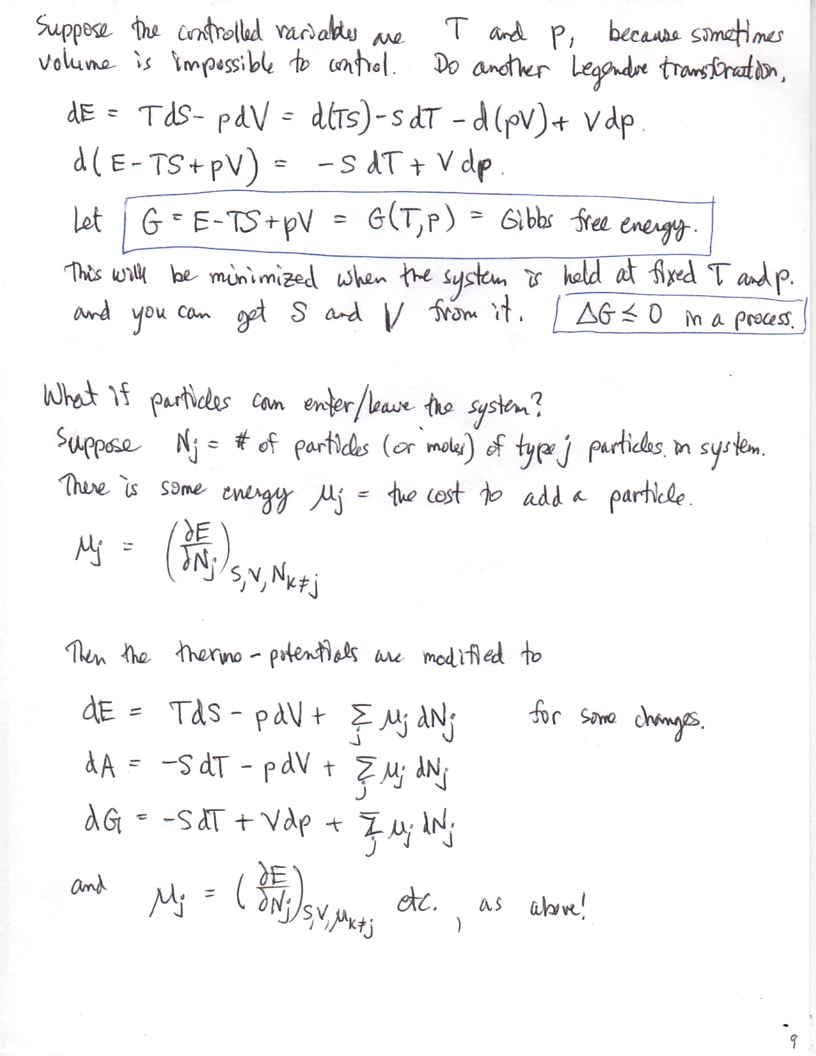 Suppose the controlled variables are T and p, because sometimes
volume is impossible to control. Do another Legendre transformation,
dE = TdS - pdV = d(TS) - SdT - d(pV) + Vdp.
d(E - TS + pV) = -SdT + Vdp.
Let G = E - TS + pV = G(T,p) = Gibbs free energy.
This will be minimized when the system is held at fixed T and p.
and you can get S and V from it. ΔG ≤ 0 in a process.
What if particles can enter/leave the system?
Suppose Nj = # of particles (or moles) of type j particles in system.
There is some energy μj = the cost to add a particle.
μj = (∂E/∂Nj)S,V,Nk≠j
Then the thermo-potentials are modified to
dE = TdS - pdV + Σj μj dNj for some changes.
dA = -SdT - pdV + Σj μj dNj
dG = -SdT + Vdp + Σj μj dNj
and μj = (∂E/∂Nj)S,V,μk≠j etc., as above!
9